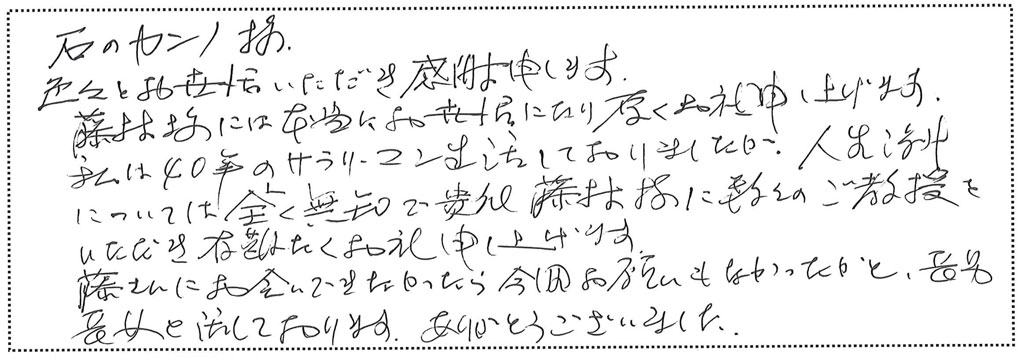 石のカンノ様.
色々とお世話いただき感謝申します.
藤林様には本当にお世話になり厚くお礼申し上げます.
私は40年のサラリーマン生活しておりましたが、人生
については全く無知で貴社 藤林様に数々のご教授を
いただき有難たくお礼申し上げます.
藤さんにお会いできなかったら今回お願いもなかったかと、長男
長女と話しております. ありがとうございました.